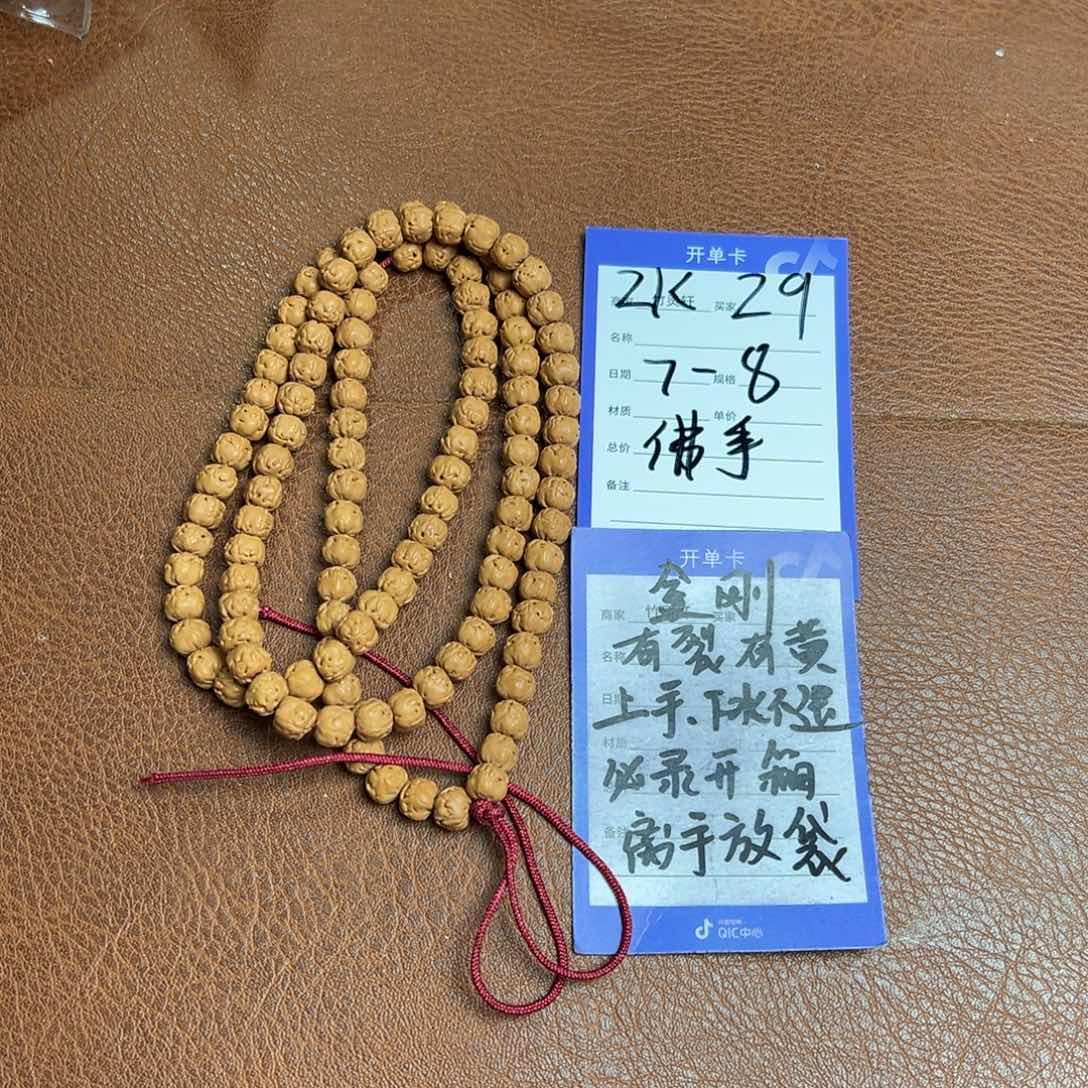 开单卡
ZK 29
买家
名称
日期 7-8 规格
材质 单价
总价 佛手
备注
开单卡
金刚
商家 竹 买家
名称 有裂有黄
日期 上手、下水不退
材质
必录开箱
备注 离手放袋
QIC中心